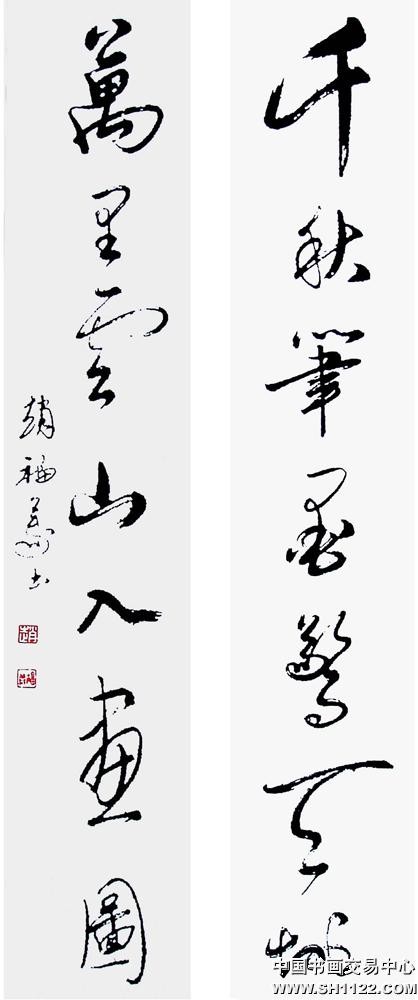 千秋筆墨驚天地
萬里雲山入畫圖
趙福義書
中国书画交易中心
www.SH1122.com